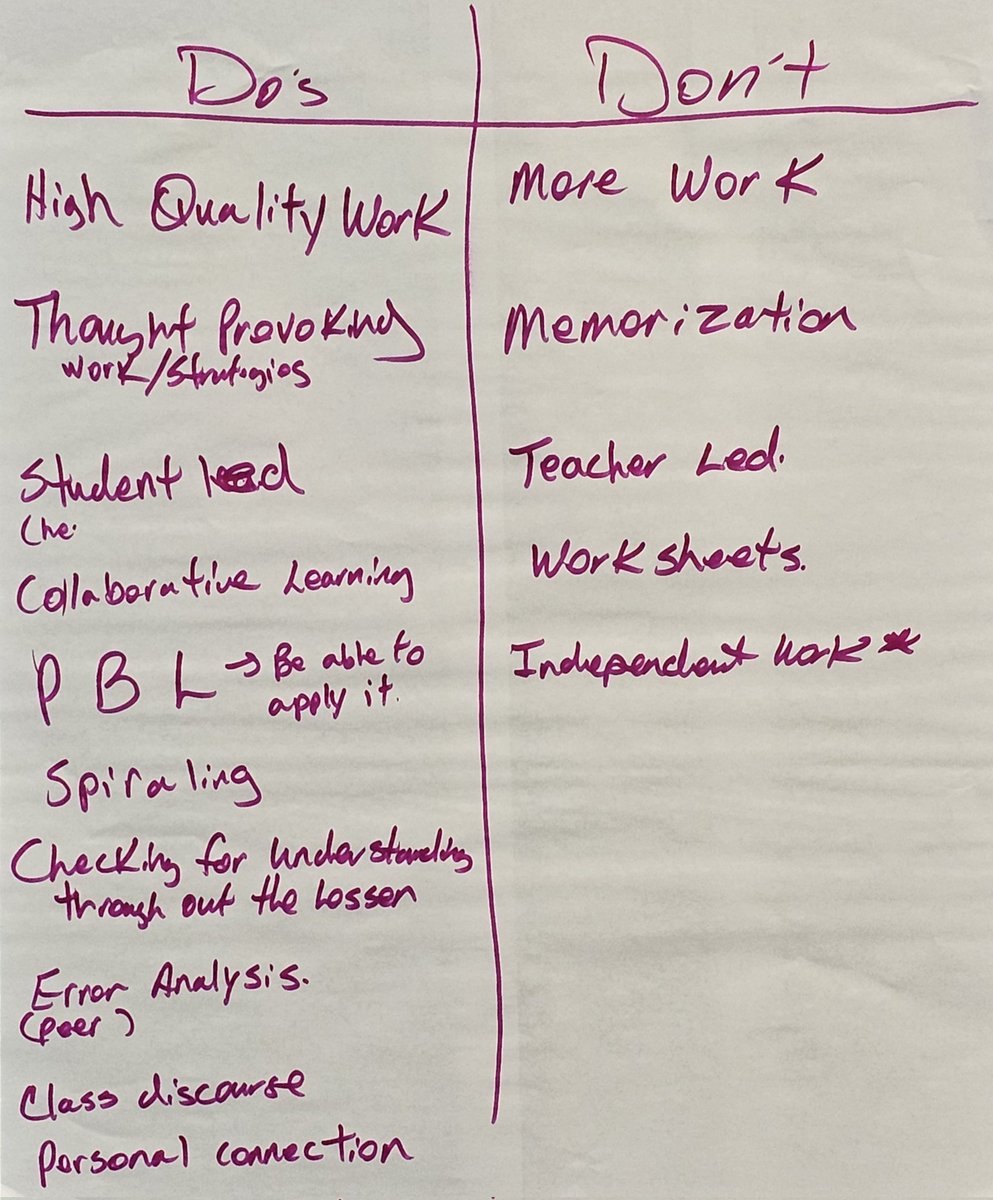 Do's
High Quality Work
Thought Provoking
work/strategies
Student led
Che
Collaborative Learning
PBL → Be able to
apply it.
Spiraling
Checking for understanding
through out the Lesson
Error Analysis.
(peer)
Class discourse
Personal connection
Don't
More Work
Memorization
Teacher Led.
Work sheets.
Independent work *